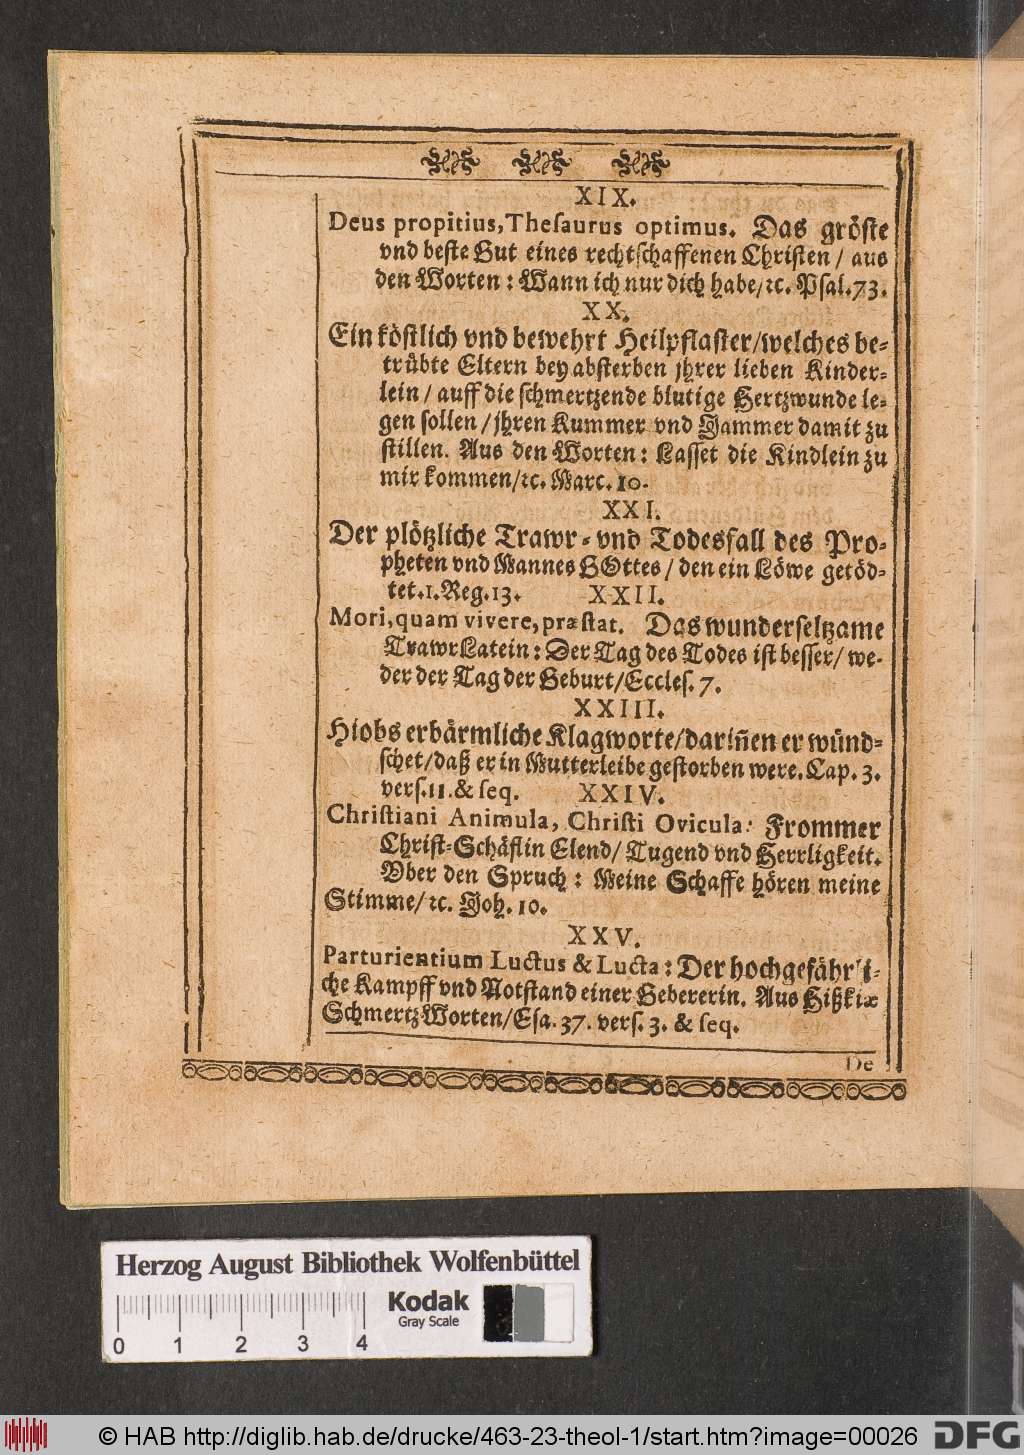 XIX.
Deus propitius, Theſaurus optimus. Das gröſte
vnd beſte Gut eines rechtſchaffenen Chriſten / aus
den Worten : Wann ich nur dich habe/ꝛc. Pſal.73.
XX.
Ein köſtlich vnd bewehrt Heilpflaſter/welches be-
trübte Eltern bey abſterben jhrer lieben Kinder-
lein / auff die ſchmertzende blutige Hertzwunde le-
gen ſollen / jhren Kummer vnd Jammer damit zu
ſtillen. Aus den Worten : Laſſet die Kindlein zu
mir kommen/ꝛc. Marc. 10.
XXI.
Der plötzliche Trawr- vnd Todesfall des Pro-
pheten vnd Mannes GOttes / den ein Löwe getöd-
tet.1.Reg.13. XXII.
Mori, quam vivere, præſtat. Das wunderſeltzame
TrawrLatein : Der Tag des Todes iſt beſſer/ we-
der der Tag der Geburt/Eccleſ. 7.
XXIII.
Hiobs erbärmliche Klagworte/dariñen er wünd-
ſchet/daß er in Mutterleibe geſtorben were. Cap. 3.
verſ.11. & ſeq. XXIV.
Chriſtiani Animula, Chriſti Ovicula: Frommer
Chriſt-Schäflin Elend/ Tugend vnd Herrligkeit.
Vber den Spruch : Meine Schaffe hören meine
Stimme/ꝛc. Joh. 10.
XXV.
Parturientium Luctus & Lucta : Der hochgefährli-
che Kampff vnd Notſtand einer Gebererin. Aus Hißkiæ
SchmertzWorten/Eſa. 37. verſ. 3. & ſeq.
De
Herzog August Bibliothek Wolfenbüttel
Kodak
Gray Scale
0 1 2 3 4
© HAB http://diglib.hab.de/drucke/463-23-theol-1/start.htm?image=00026
DFG